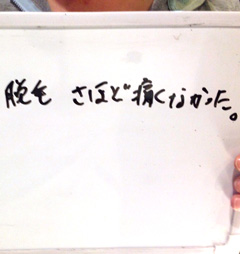 脱毛 さほど痛くなかった。